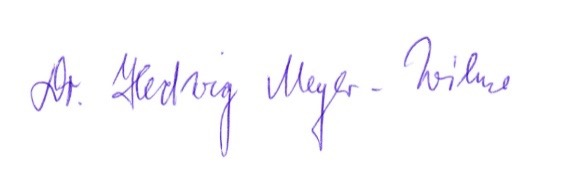 Dr. Hedwig Meyer-Wilmes